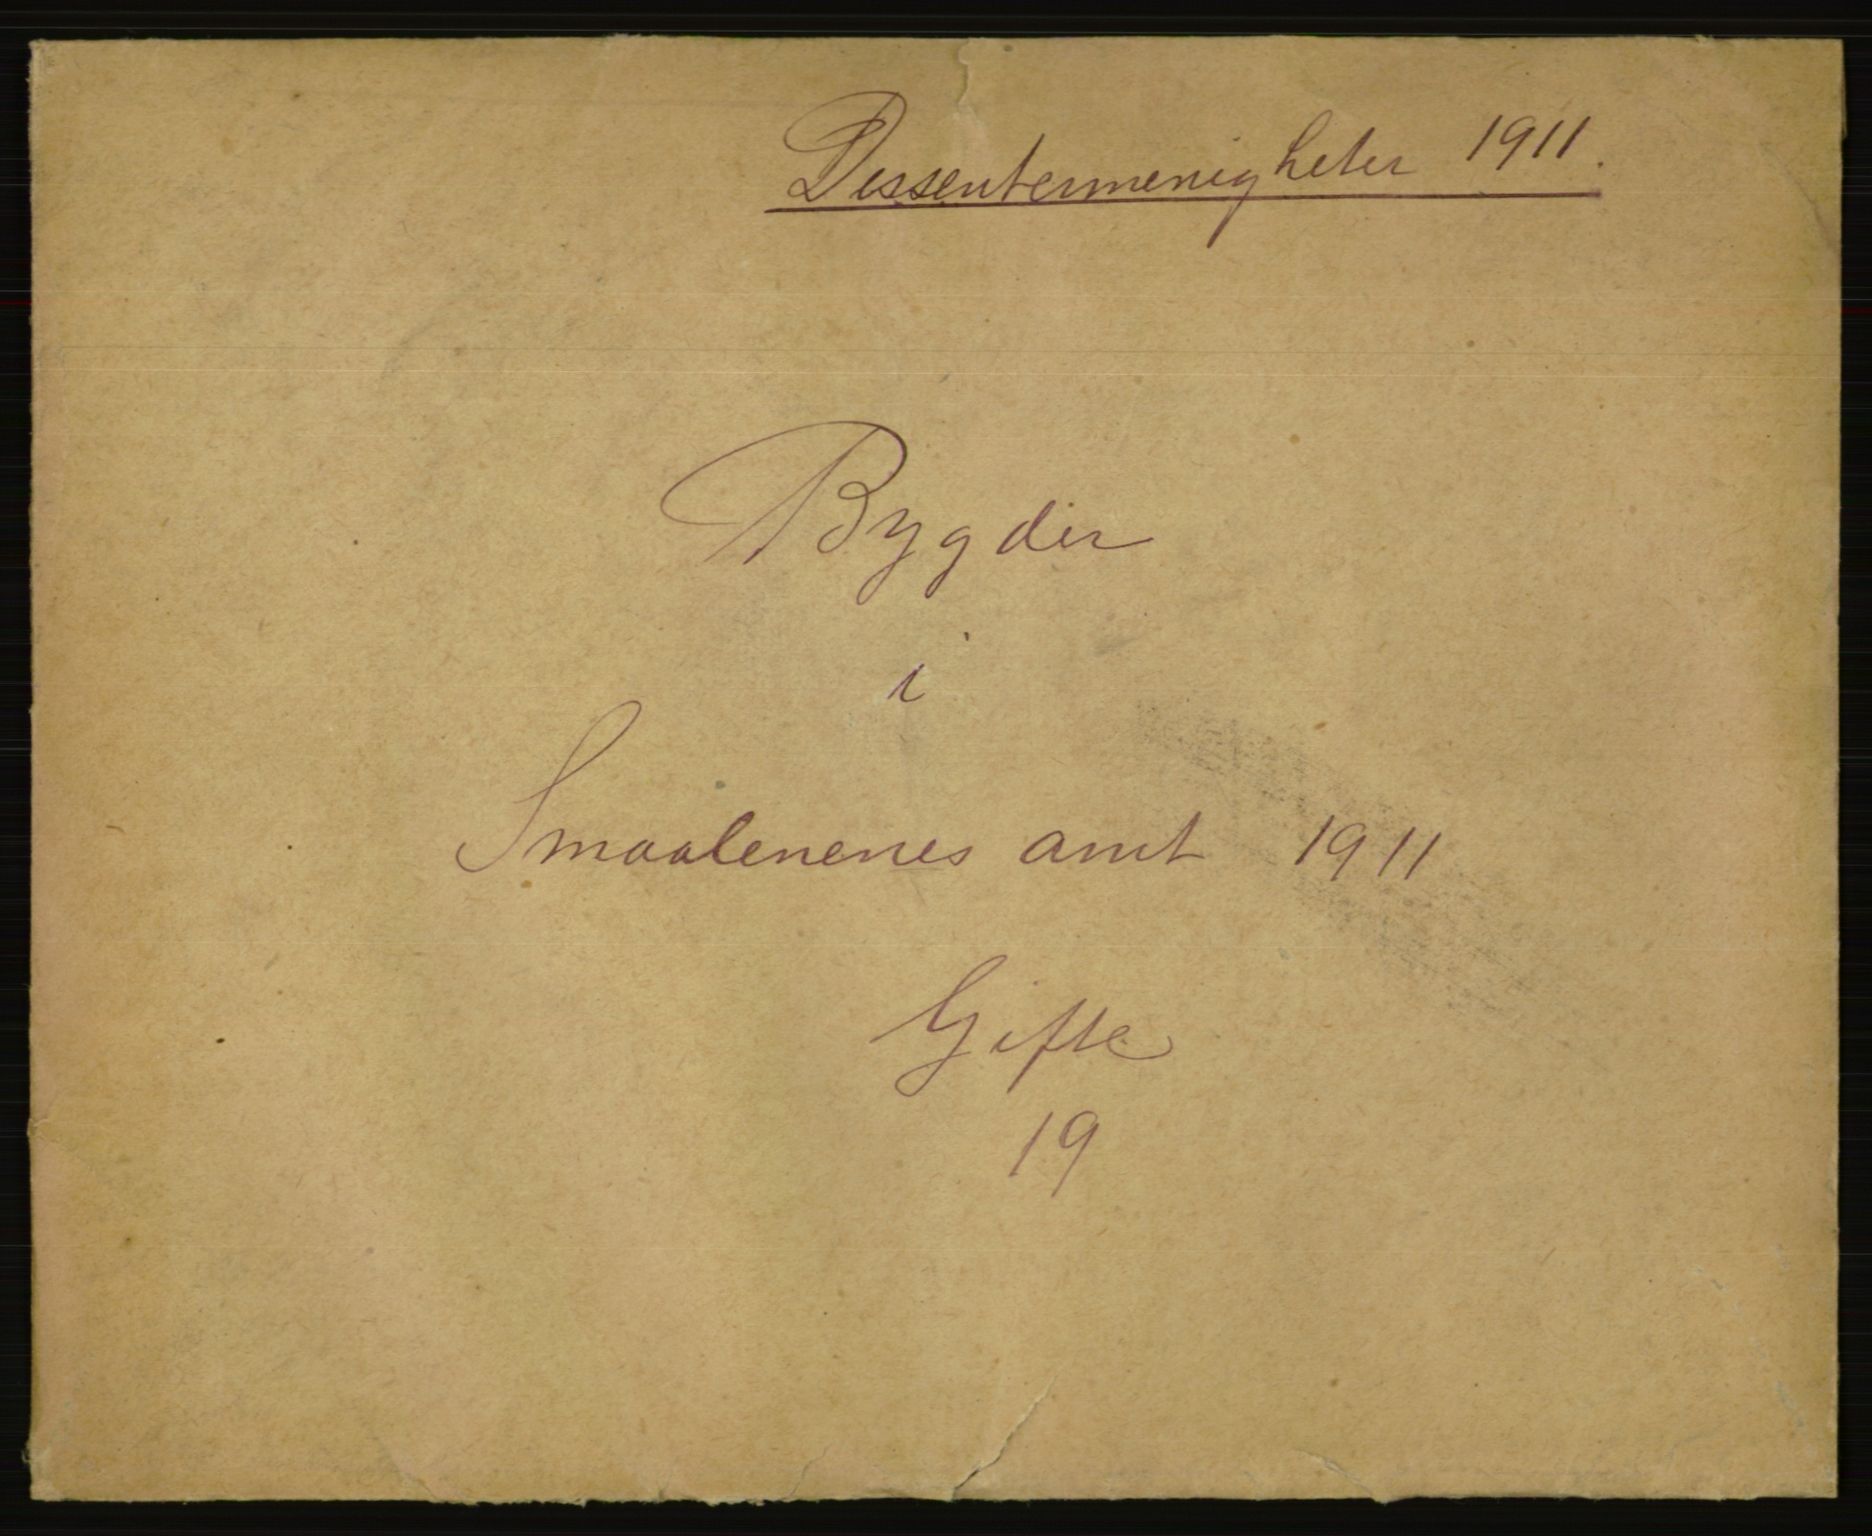 Dissentermenigheter 1911.
Bygder
i
Smaalenenes amt 1911
Gifte
19